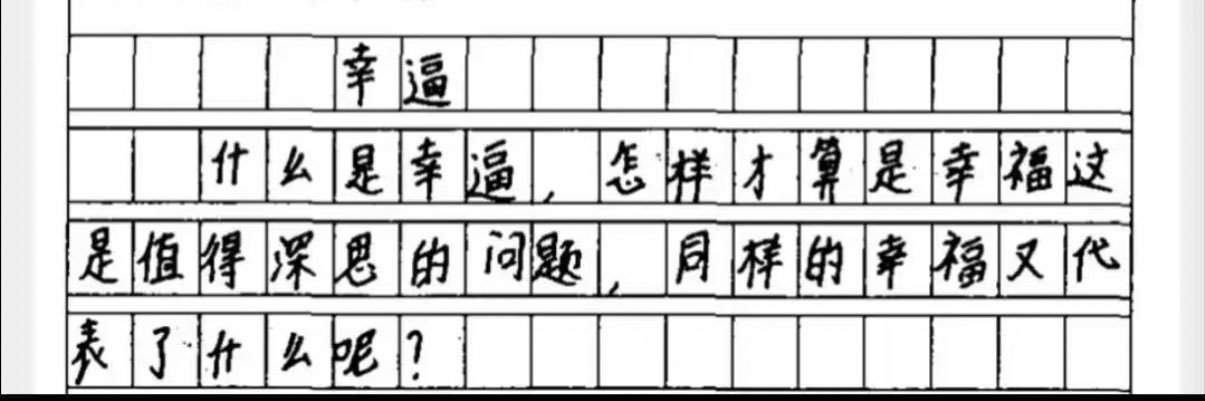 幸逼
什么是幸逼，怎样才算是幸福这
是值得深思的问题，同样的幸福又代
表了什么呢？